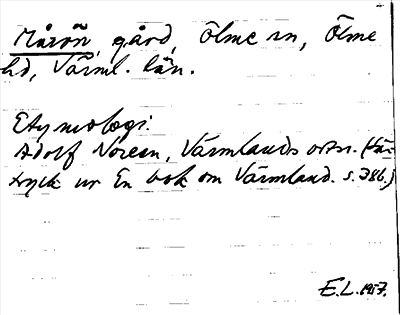 Måsön, gård, Ölme sn, Ölme
hd, Värml. län.
Etymologi:
Adolf Noreen, Värmlands ortn. (Sär-
tryck ur En bok om Värmland. s. 286.)
E.L. 1957.